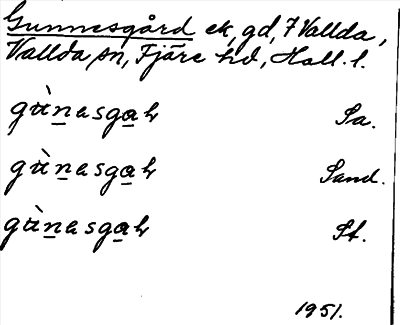 Gunnesgård ek, gd, 7 Vallda,
Vallda sn, Fjäre hd, Hall. l.
gùnasgaḷ Sa.
gùnasgaḷ Sand.
gùnasgaḷ St.
1951.